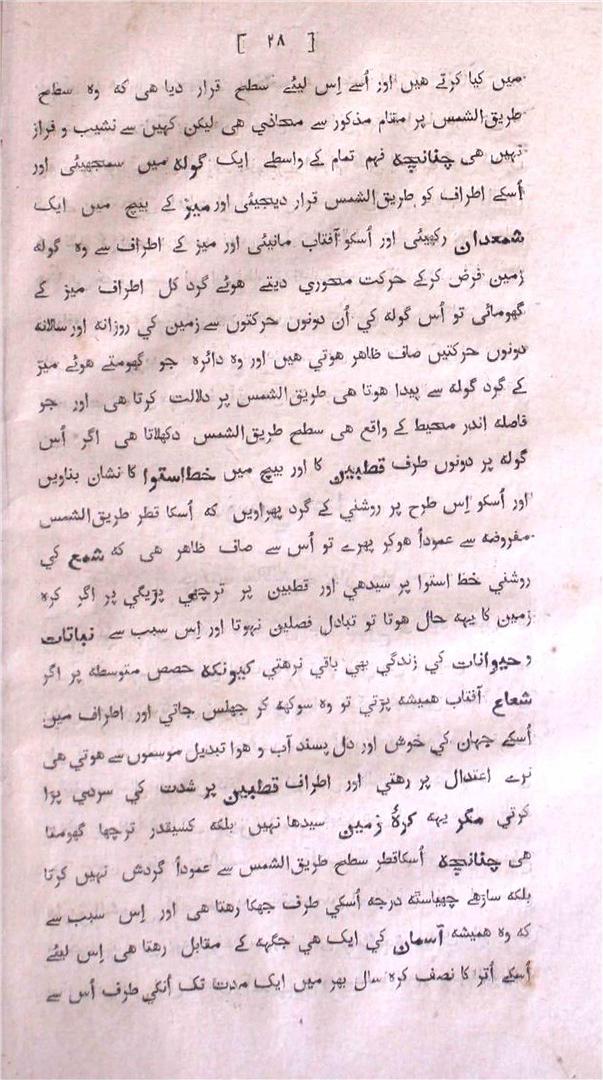 [ ٢٨ ]
میں کیا کرتے هیں اور اُسے اِس لیئے سطح قرار دیا هی که وه سطح
طریق الشمس پر مقام مذکور سے محاذي هی لیکن کہیں سے نشیب و فراز
نہیں هی چنانچه فہم تمام کے واسطے ایک گوله میں سمجھیئی اور
اُسکے اطراف کو طریق الشمس قرار دیجیئی اور میز کے بیچ میں ایک
شمعدان رکھیئی اور اُسکو آفتاب مانیئی اور میز کے اطراف سے وه گوله
زمین فرض کرکے حرکت محوري دیتے هوئے گرد کل اطراف میز کے
گھومائی تو اُس گوله کي اُن دونوں حرکتوں سے زمین کي روزانه اور سالانه
دونوں حرکتیں صاف ظاهر هوتي هیں اور وه دائره جو گھومتے هوئے میز
کے گرد گوله سے پیدا هوتا هی طریق الشمس پر دلالت کرتا هی اور جو
فاصله اندر محیط کے واقع هی سطح طریق الشمس دکھلاتا هی اگر اُس
گوله پر دونوں طرف قطبین کا اور بیچ میں خط استوا کا نشان بناویں
اور اُسکو اِس طرح پر روشني کے گرد پھراویں که اُسکا قطر طریق الشمس
مفروضه سے عموداً هوکر پھرے تو اُس سے صاف ظاهر هی که شمع کي
روشني خط استوا پر سیدهي اور قطبین پر ترچھي پڑیگي پر اگر کره
زمین کا یہه حال هوتا تو تبادل فصلین نہوتا اور اِس سبب سے نباتات
و حیوانات کي زندگي بھي باقي نرهتي کیونکه حصص متوسطه پر اگر
شعاع آفتاب همیشه پڑتي تو وه سوکھه کر جھلس جاتي اور اطراف میں
اُسکے جہان کي خوش اور دل پسند آب و هوا تبدیل موسموں سے هوتي هی
نرے اعتدال پر رهتي اور اطراف قطبین پر شدت کي سردي پڑا
کرتي مگر یہه کرۀ زمین سیدها نہیں بلکه کسیقدر ترچھا گھومتا
هی چنانچه اُسکا قطر سطح طریق الشمس سے عموداً گردش نہیں کرتا
بلکه ساڑھے چھیاسٹه درجه اُسکي طرف جھکا رهتا هی اور اِس سبب سے
که وه همیشه آسمان کي ایک هي جگہه کے مقابل رهتا هی اِس لیئے
اُسکے اُتر کا نصف کره سال بھر میں ایک مدت تک اُنکي طرف اُس سے